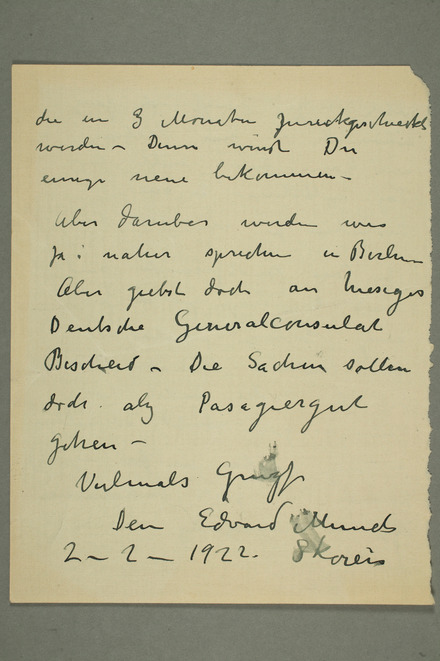 die in 3 Monaten zurückgeschickt
werden – Dann wirst Du
einige neue bekommen –
Aber darüber werden wir
ja : naher sprechen in Berlin
Aber giebst doch an hiesiges
Deutsche Generalconsulat
Bescheid – Die Sachen sollen
doch als Pasagiergut
gehen –
Vielmals
Dein Edvard Munch
2 – 2 – 1922. Skøien